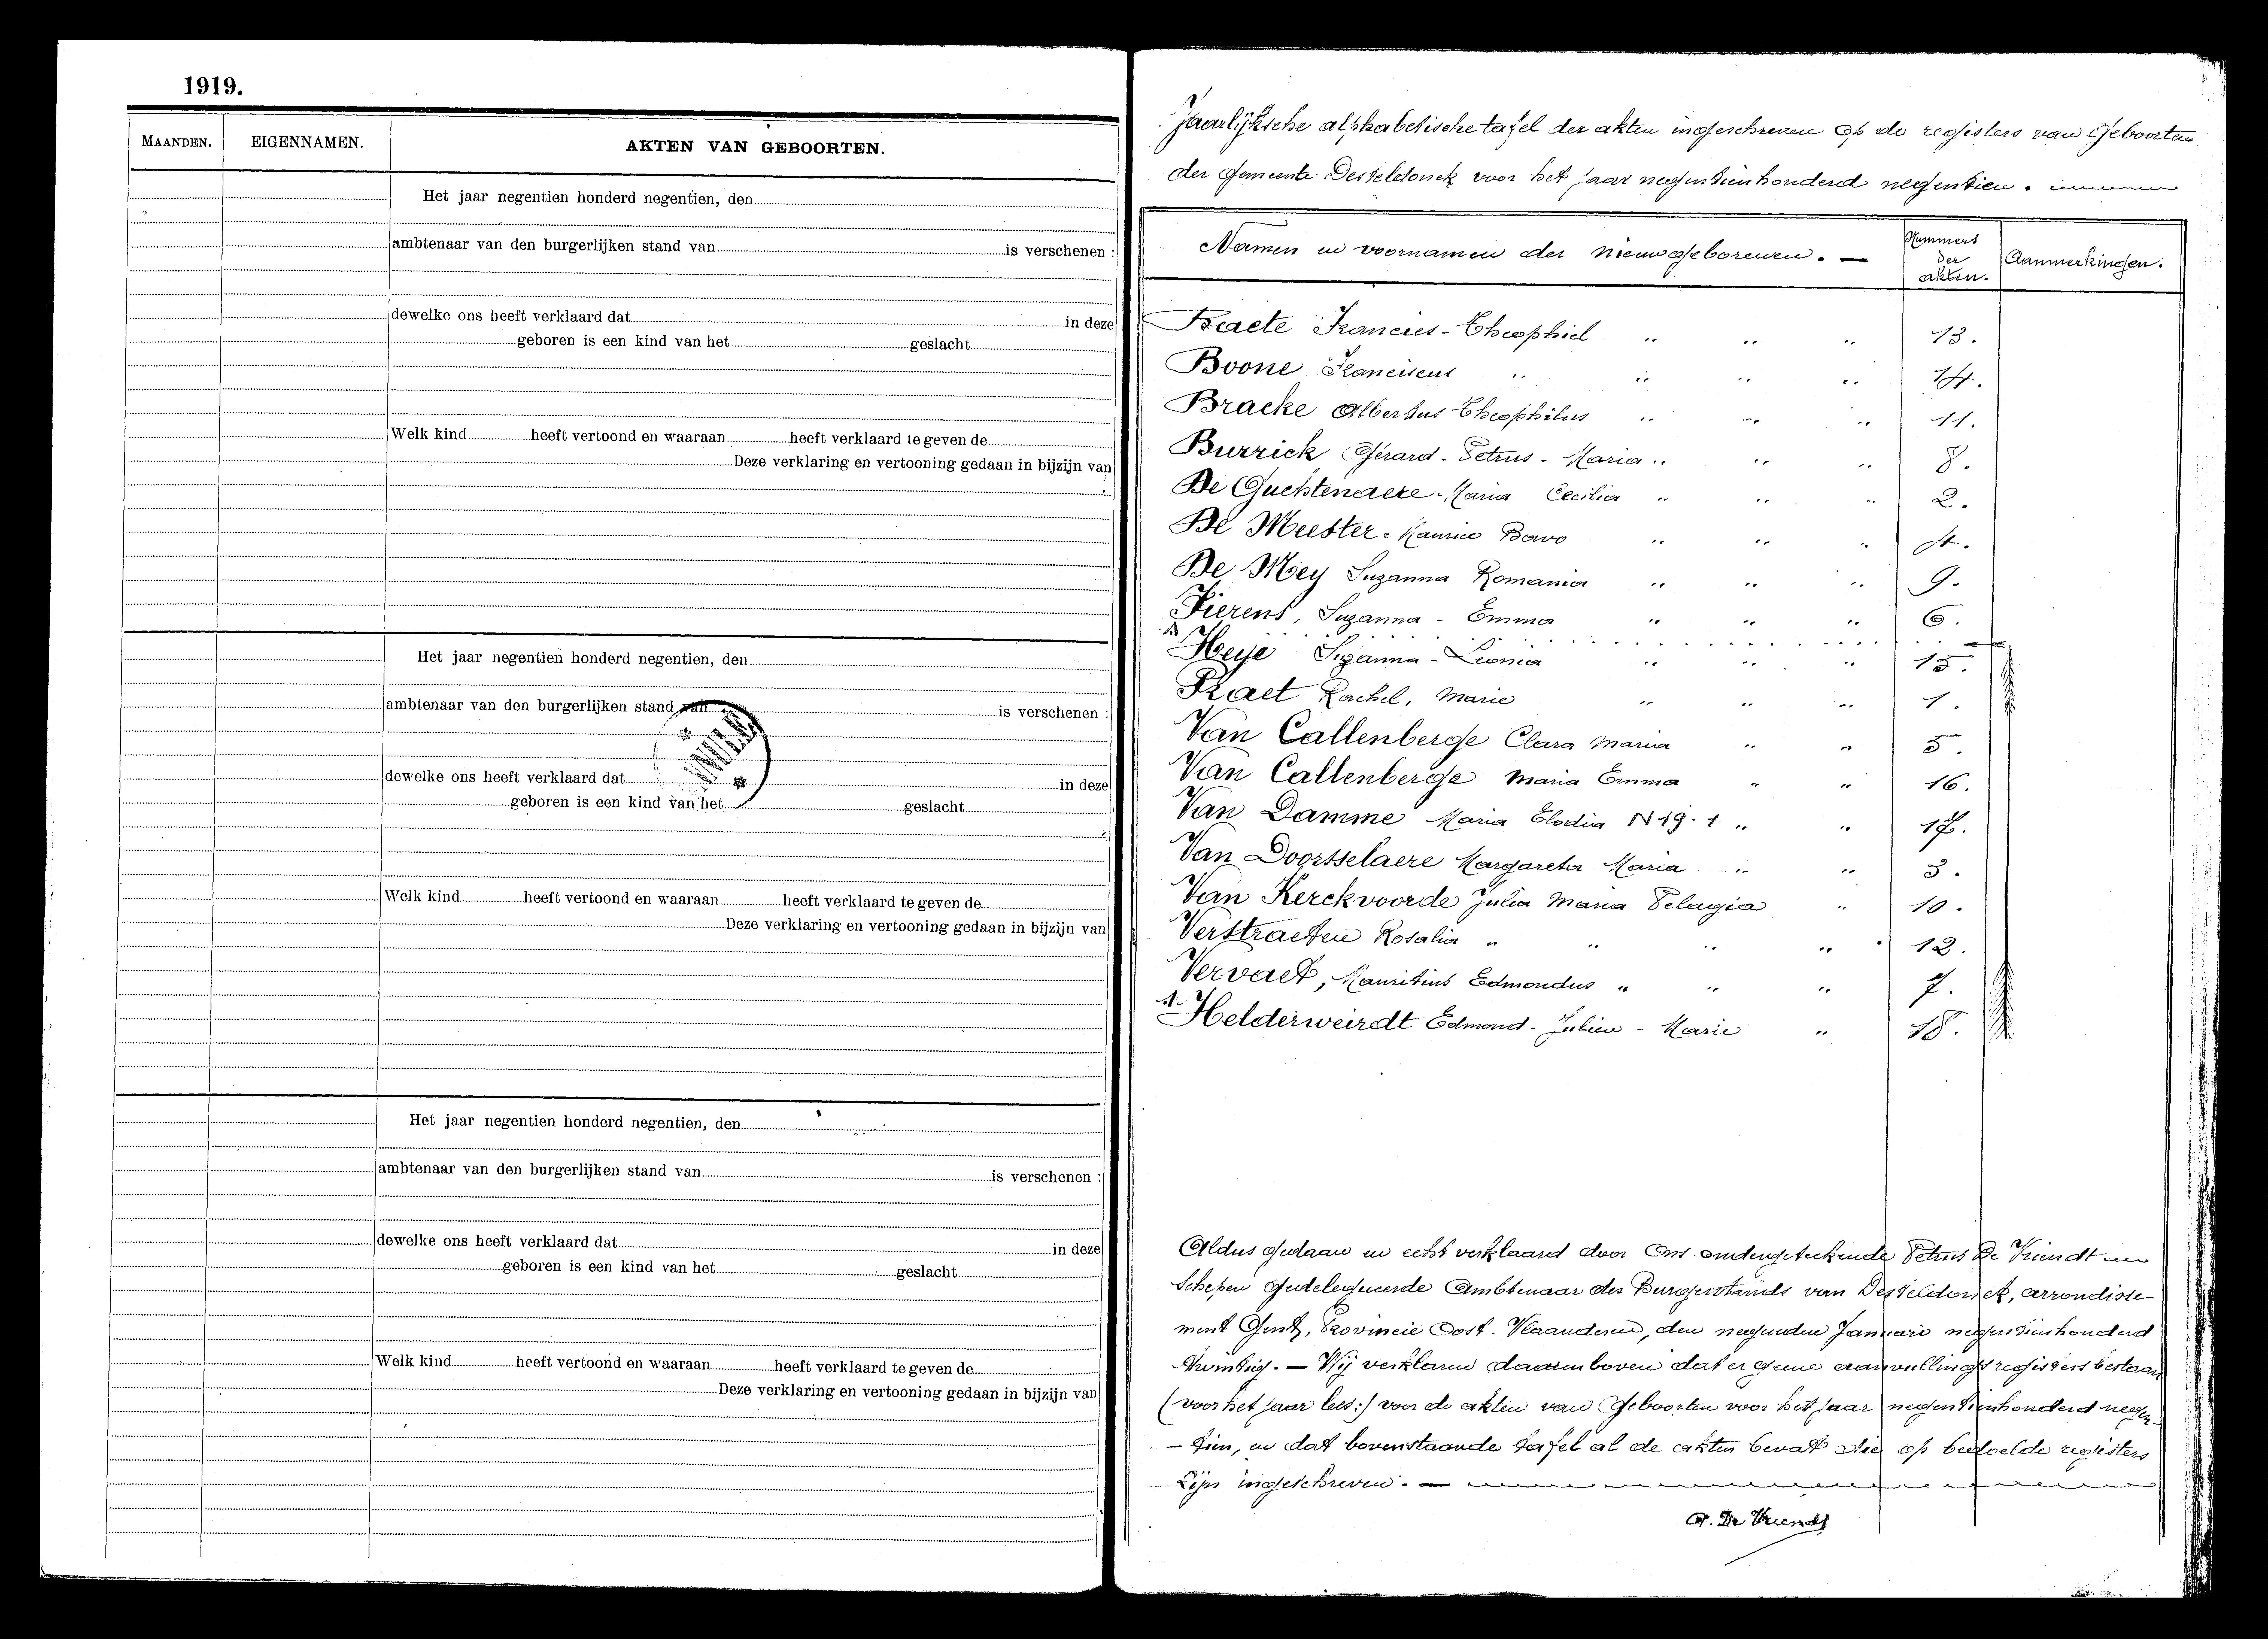 1919.
MAANDEN. EIGENNAMEN. AKTEN VAN GEBOORTEN.
Het jaar negentien honderd negentien, den
ambtenaar van den burgerlijken stand van is verschenen :
dewelke ons heeft verklaard dat in deze
geboren is een kind van het geslacht
Welk kind heeft vertoond en waaraan heeft verklaard te geven de
Deze verklaring en vertooning gedaan in bijzijn van
Het jaar negentien honderd negentien, den
ambtenaar van den burgerlijken stand van is verschenen :
dewelke ons heeft verklaard dat in deze
geboren is een kind van het geslacht
Welk kind heeft vertoond en waaraan heeft verklaard te geven de
Deze verklaring en vertooning gedaan in bijzijn van
Het jaar negentien honderd negentien, den
ambtenaar van den burgerlijken stand van is verschenen :
dewelke ons heeft verklaard dat in deze
geboren is een kind van het geslacht
Welk kind heeft vertoond en waaraan heeft verklaard te geven de
Deze verklaring en vertooning gedaan in bijzijn van
Jaarlijksche alphabetische tafel der akten ingeschreven op de registers van Geboorten
der Gemeente Desteldonck voor het jaar negentienhonderd negentien.
Namen en voornamen der nieuwgeborenen. — Nummers der akten. Aanmerkingen.
Francies-Theophiel 13.
Boone Franciscus 14.
Bracke Albertus Theophilus 11.
Burrick Gerard-Petrus-Maria 8.
De Guchtenaere Maria Cecilia 2.
De Meester Maurice Bavo 4.
De Mey Suzanna Romania 9.
Fierens, Suzanna - Emma 6.
Heije Suzanna-Leonia 15.
Praet Rachel, Marie 1.
Van Callenberge Clara Maria 5.
Van Callenberge Maria Emma 16.
Van Damme Maria Elodia N 19.1 17.
Van Doorsselaere Margareta Maria 3.
Van Kerckvoorde Julia Maria Pelagia 10.
Verstraeten Rosalia 12.
Vervaet, Mauritius Edmondus 7.
Helderweirdt Edmond-Julien-Marie 18.
Aldus gedaan en echt verklaard door Ons ondergeteekende Petrus De Vriendt
Schepen Gedelegueerde Ambtenaar des Burgerstands van Desteldonck, arrondisse-
ment Gent, Provincie Oost-Vlaanderen, den negenden Januari negentienhonderd
twintig. — Wij verklaren daarenboven dat er geene aanvullingsregisters bestaan
(voor het jaar lees:) voor de akten van Geboorten voor het jaar negentienhonderd negen-
- tien, en dat bovenstaande tafel al de akten bevat die op bedoelde registers
zijn ingeschreven. —
De Vriendt